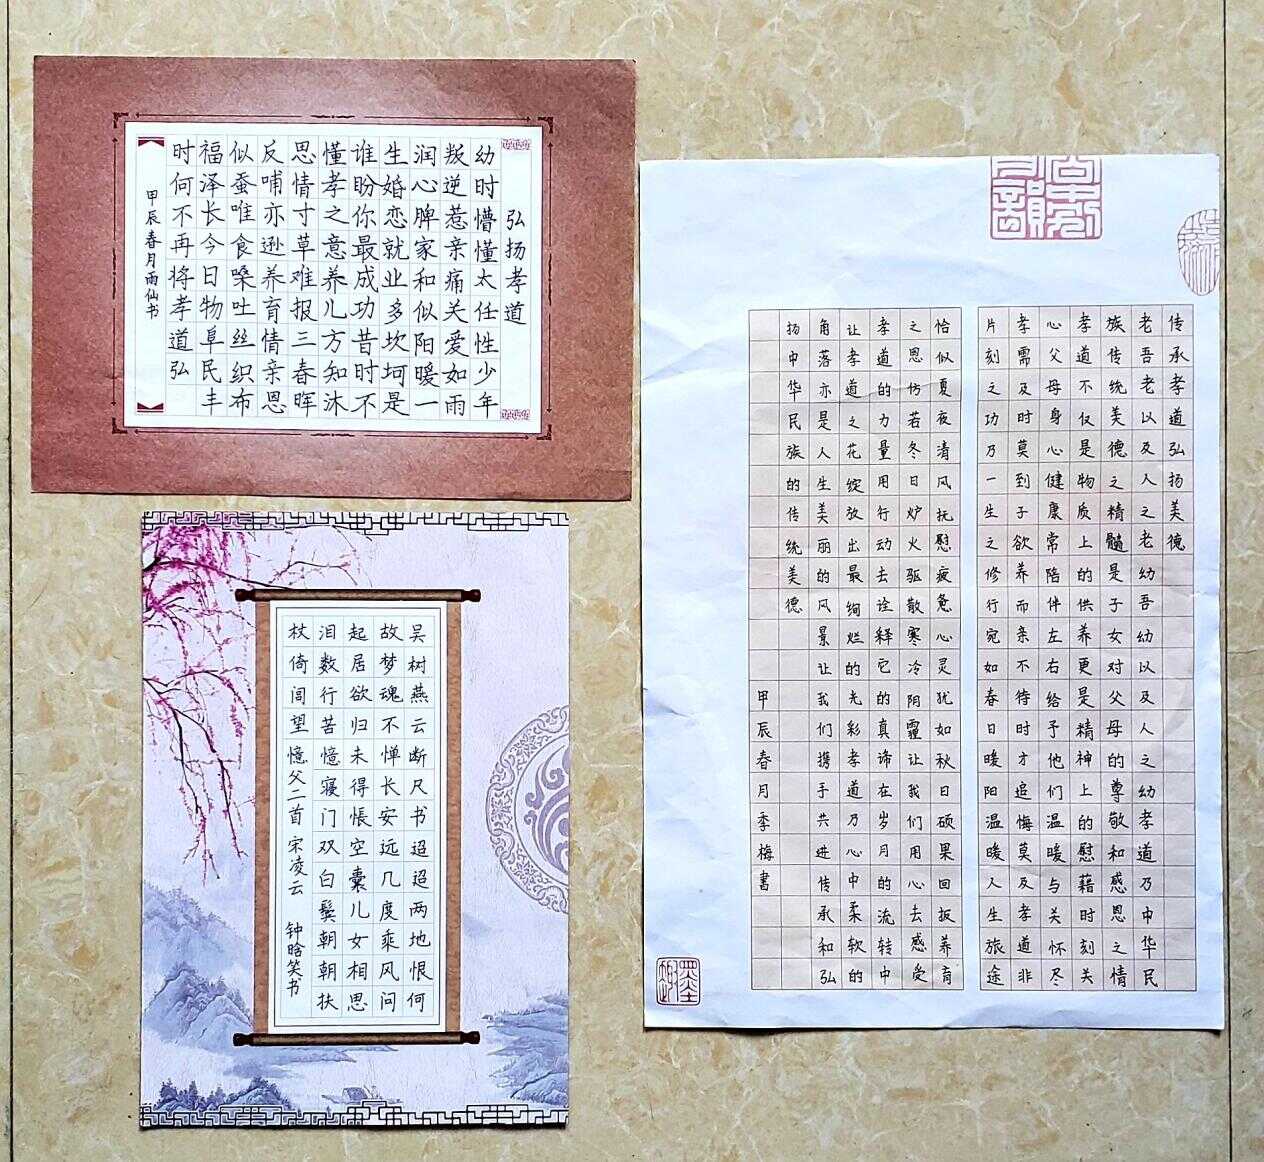 弘扬孝道
幼时懵懂太任性少年
叛逆惹亲痛关爱如雨
润心脾家和似阳暖一
生婚恋就业多坎坷是
谁盼你最成功昔时不
懂孝之意养儿方知沐
思情寸草难报三春晖
反哺亦逊养育情亲恩
似蚕唯食嗓吐丝织布
福泽长今日物阜民丰
时何不再将孝道弘
甲辰春月雨仙书
吴树燕云断尺书迢迢两地恨何
故梦魂不惮长安远几度乘风问
起居欲归未得悵空囊儿女相思
泪数行苦憶寝门双白鬓朝朝扶
杖倚闾望憶父二首 宋凌云 钟晗笑书
传承孝道弘扬美德
老吾老以及人之老幼吾幼以及人之幼孝道乃中华民
族传统美德之精髓是子女对父母的尊敬和感恩之情
孝道不仅是物质上的供养更是精神上的慰藉时刻关
心父母身心健康常陪伴左右给予他们温暖与关怀尽
孝需及时莫到子欲养而亲不待时才追悔莫及孝道非
片刻之功乃一生之修行宛如春日暖阳温暖人生旅途
恰似夏夜清风抚慰疲惫心灵犹如秋日硕果回报养育
之恩仿若冬日炉火驱散寒冷阴霾让我们用心去感受
孝道的力量用行动去诠释它的真谛在岁月的流转中
让孝道之花绽放出最绚烂的光彩孝道乃心中柔软的
角落亦是人生美丽的风景让我们携手共进传承和弘
扬中华民族的传统美德
甲辰春月季梅书